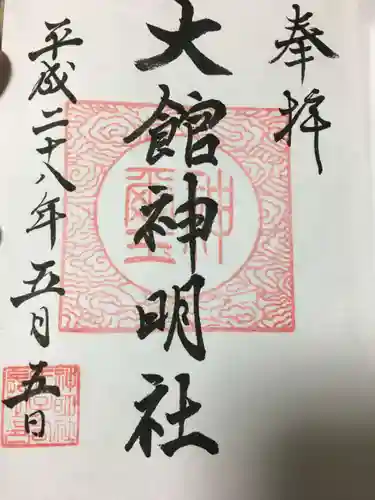 奉拝
大館神明社
平成二十八年五月五日